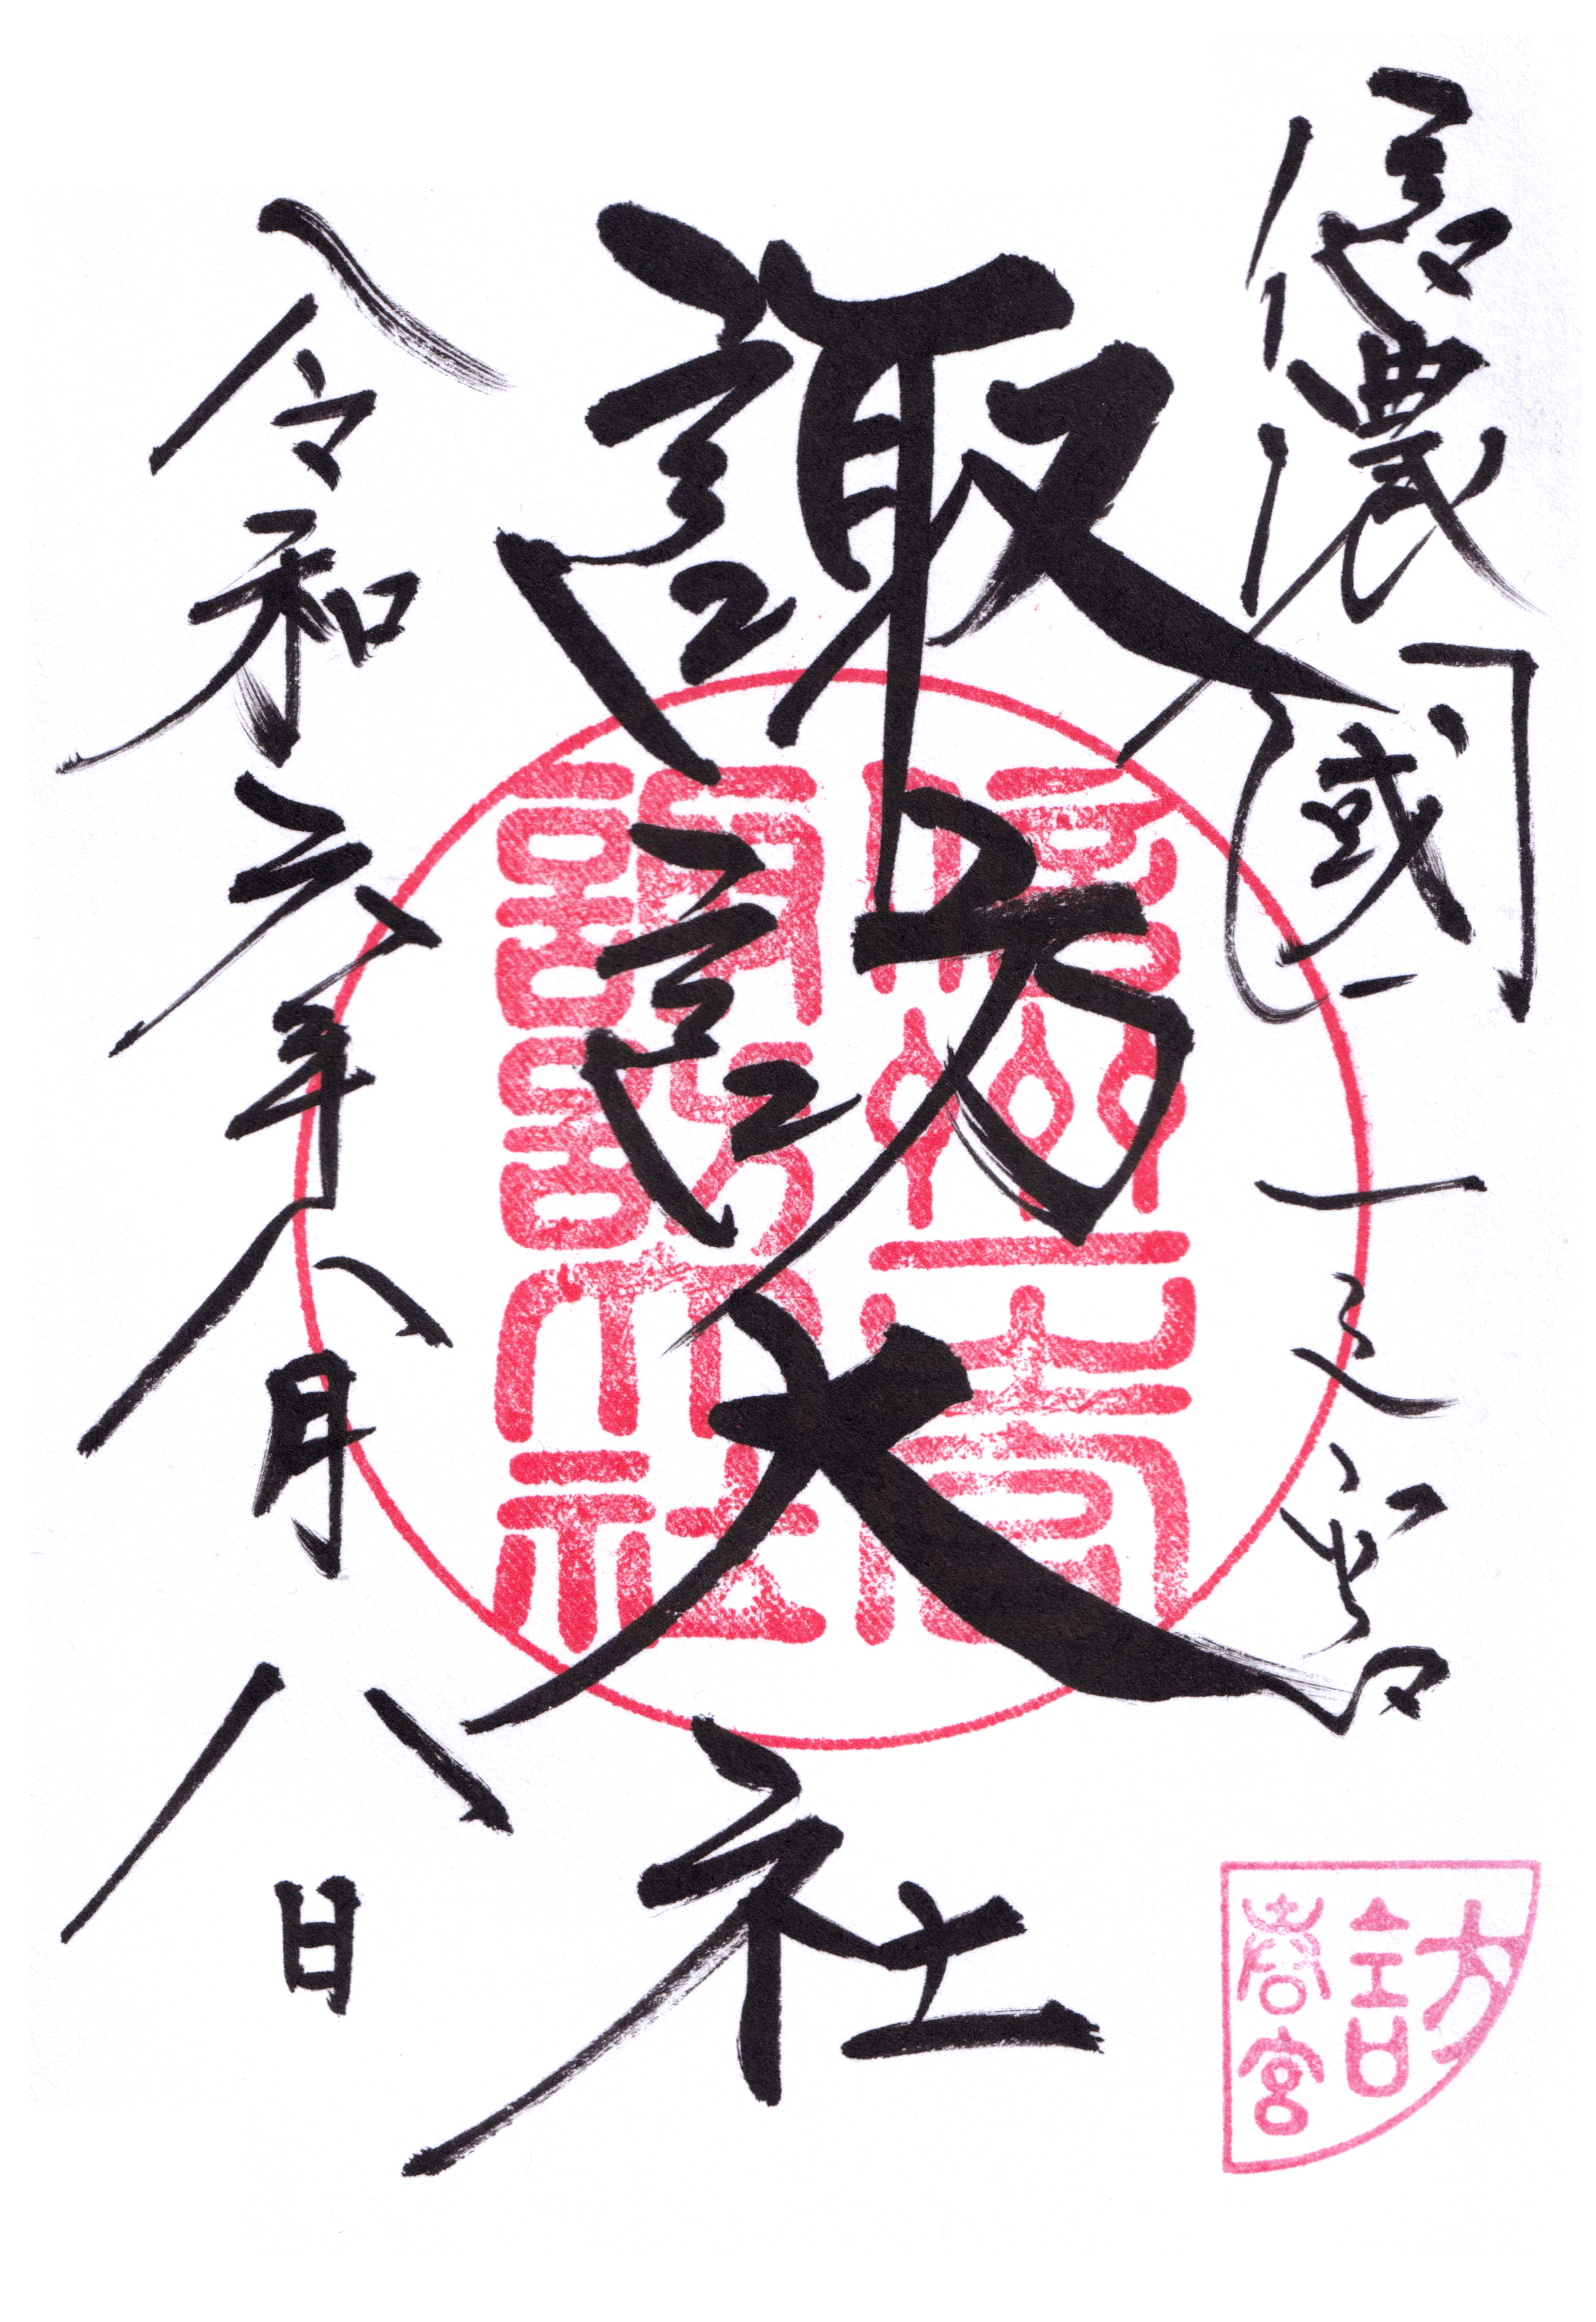 信濃國一之宮
諏訪大社
令和六年八月八日
信州一之宮
諏訪大社
訪
春宮